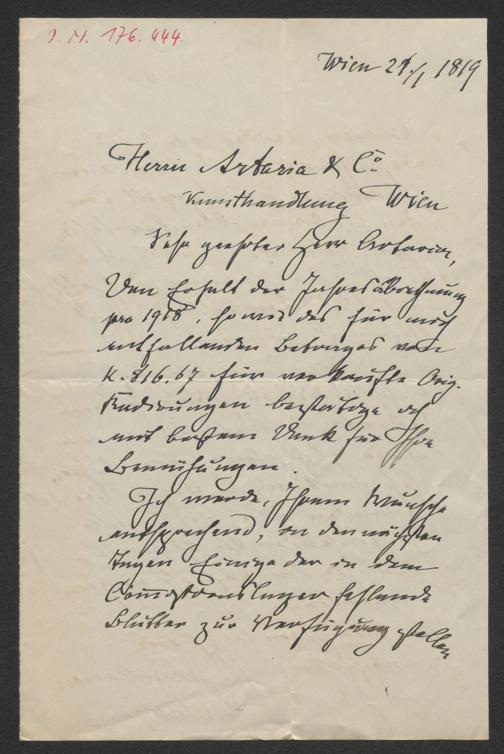 J. N. 176.444
Wien 21./1 1819
Herrn Artaria & Co.
Kunsthandlung Wien
Sehr geehrter Herr Artaria,
Den Erhalt der Jahresabrechnung
pro 1918, sowie des für mich
entfallenden Betrages von
K. 816.67 für verkaufte Orig.
Radirungen bestätige ich
mit bestem Dank für Ihre
Bemühungen.
Ich werde, Ihrem Wunsche
entsprechend, in den nächsten
Tagen einige der in dem
Commissionslager fehlende
Blätter zur Verfügung stellen